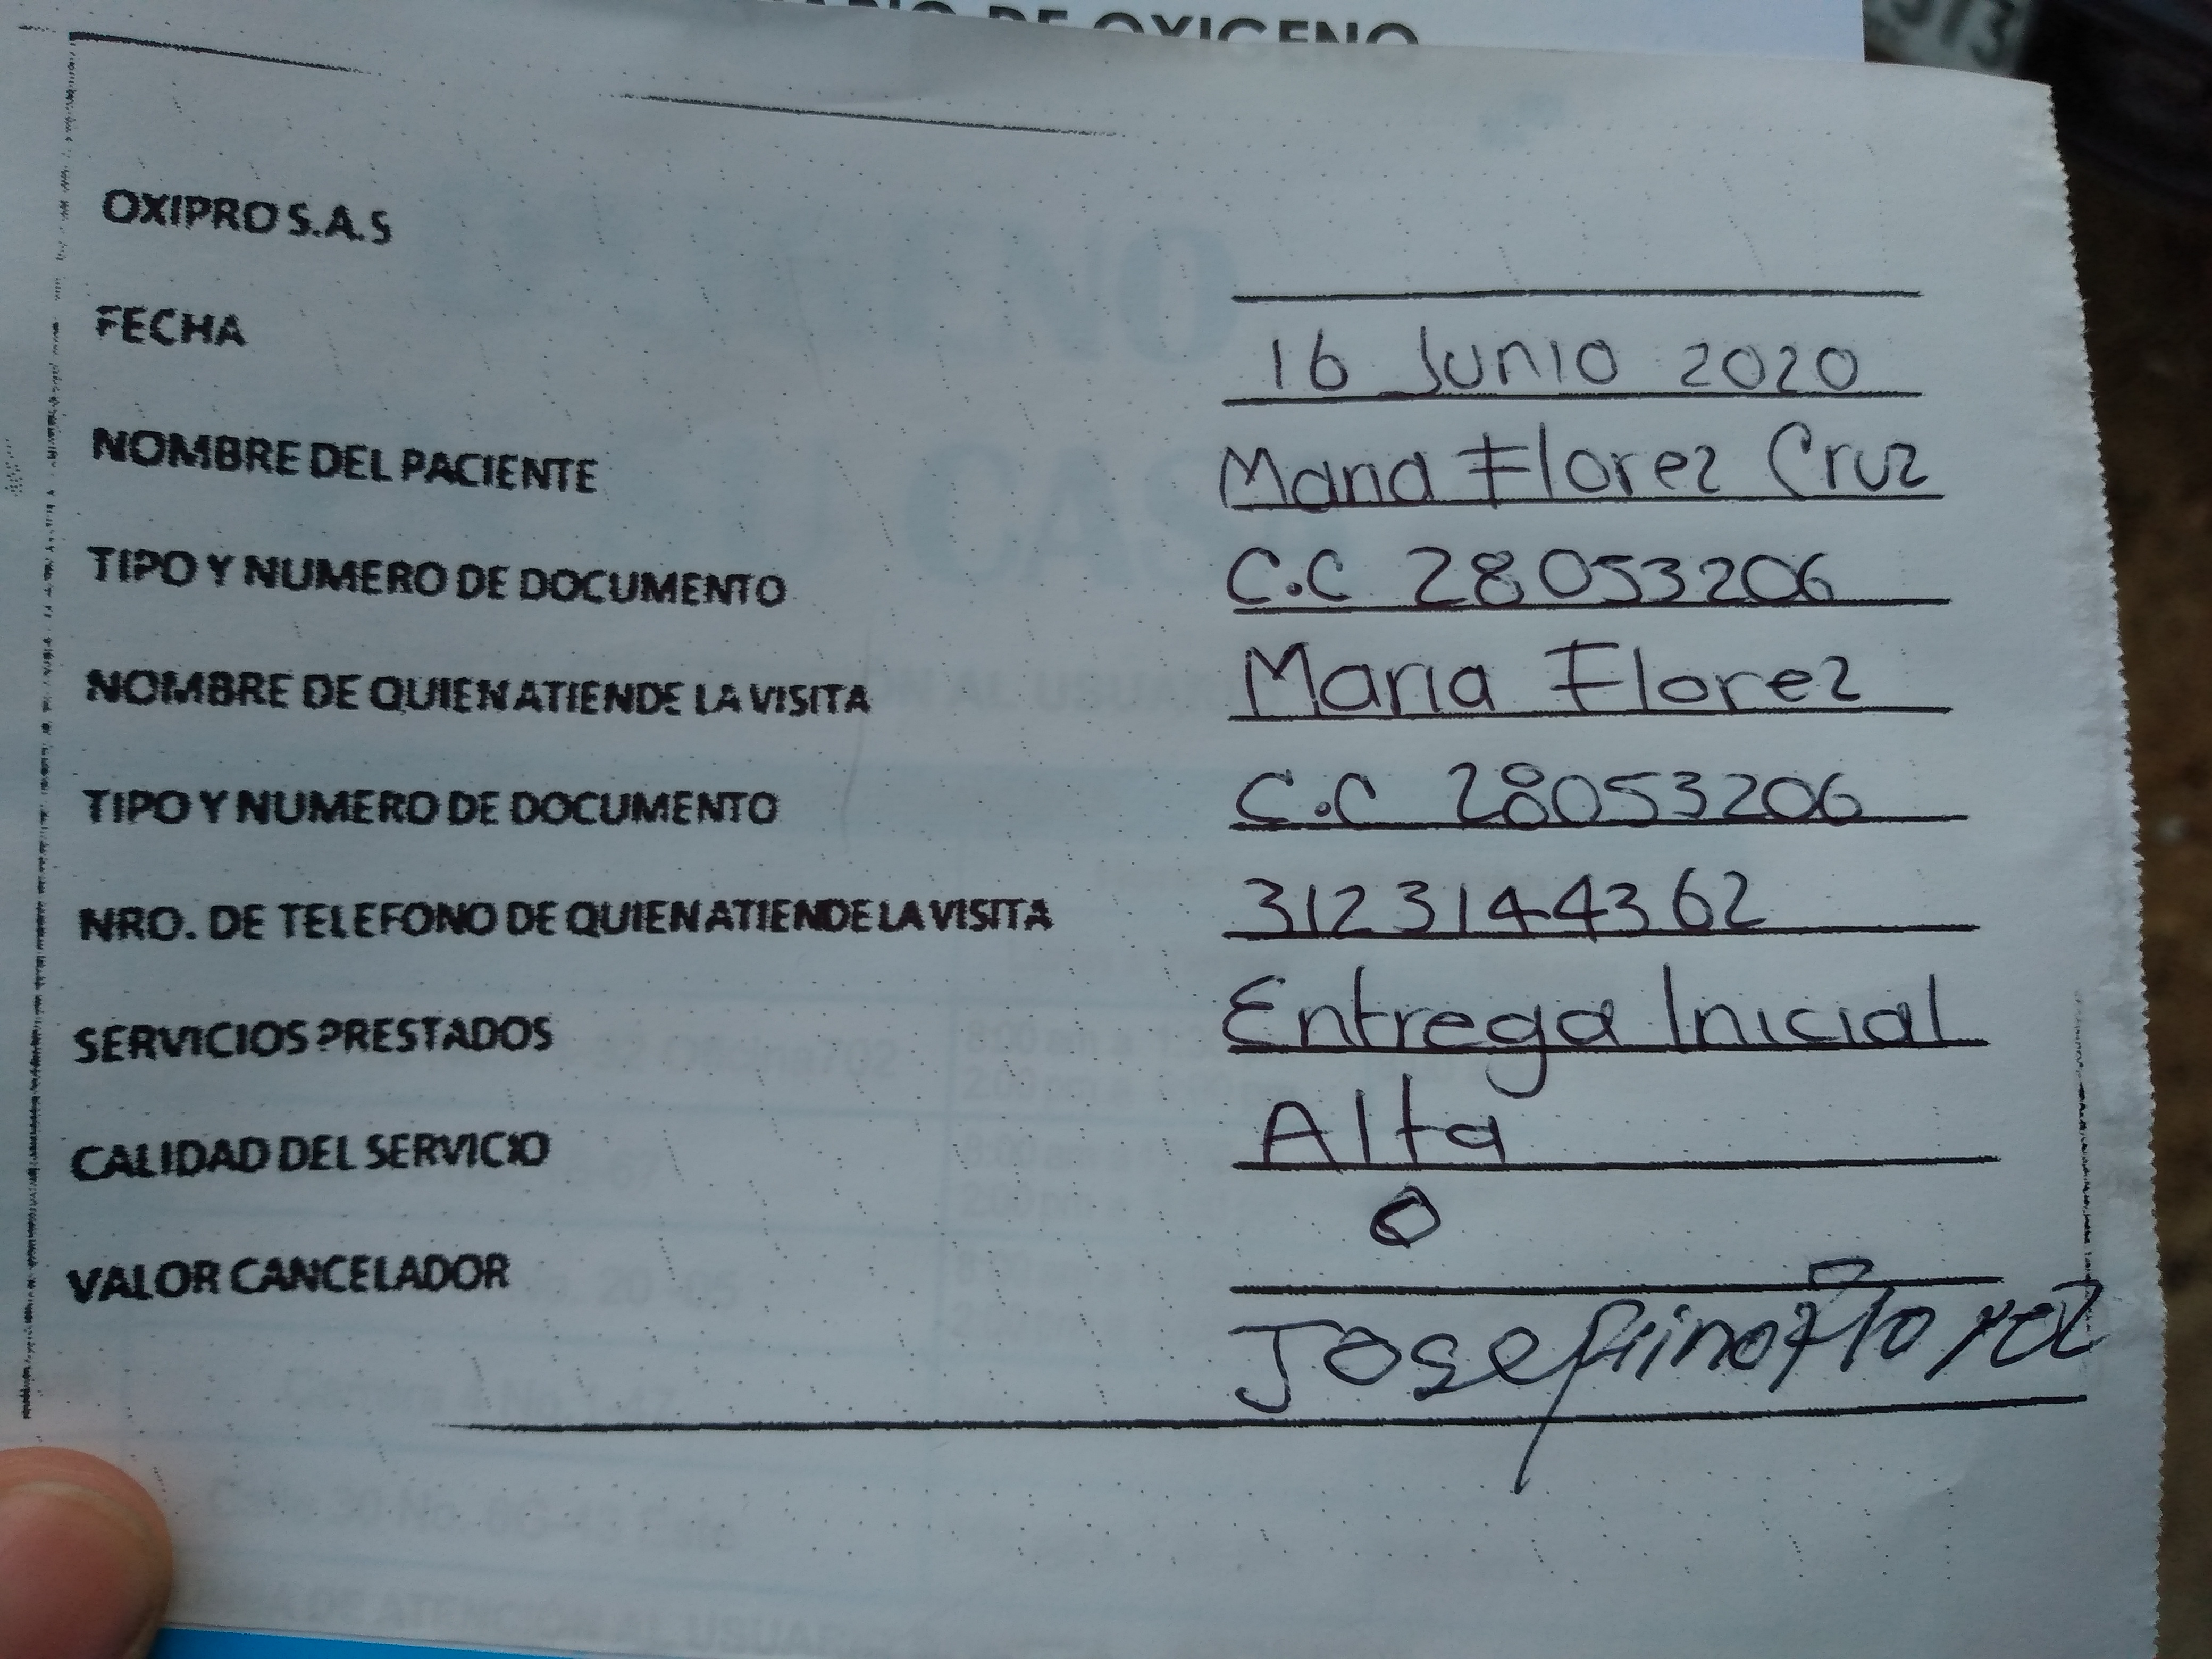 OXIGENO
OXIPRO S.A.S
FECHA 16 Junio 2020
NOMBRE DEL PACIENTE Maria Florez Cruz
TIPO Y NUMERO DE DOCUMENTO C.C 28053206
NOMBRE DE QUIEN ATIENDE LA VISITA Maria Florez
TIPO Y NUMERO DE DOCUMENTO C.C 28053206
NRO. DE TELEFONO DE QUIEN ATIENDE LA VISITA 3123144362
SERVICIOS PRESTADOS Entrega Inicial
CALIDAD DEL SERVICIO Alta
VALOR CANCELADOR 0
Josefina Florez